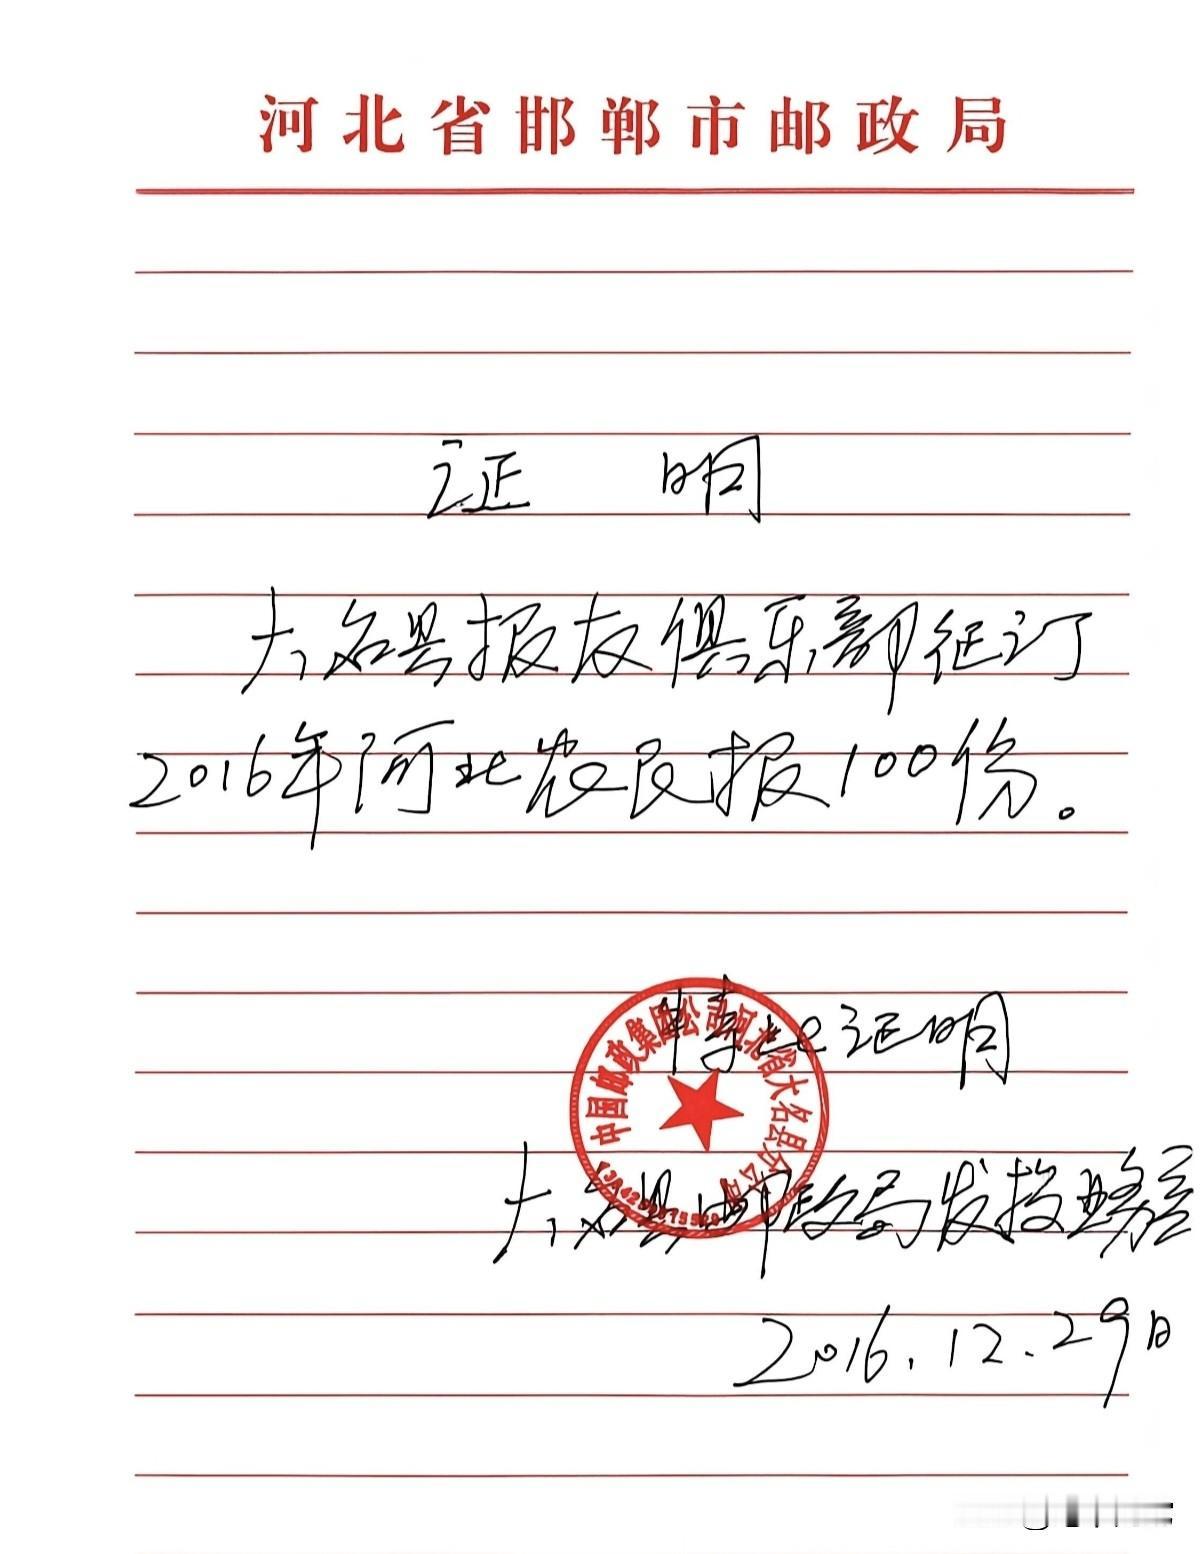 河北省邯郸市邮政局
证明
大名县报友俱乐部征订
2016年河北农民报100份。
特此证明
中国邮政集团公司河北省大名县分公司
大名县邮政局发投
2016.12.29日